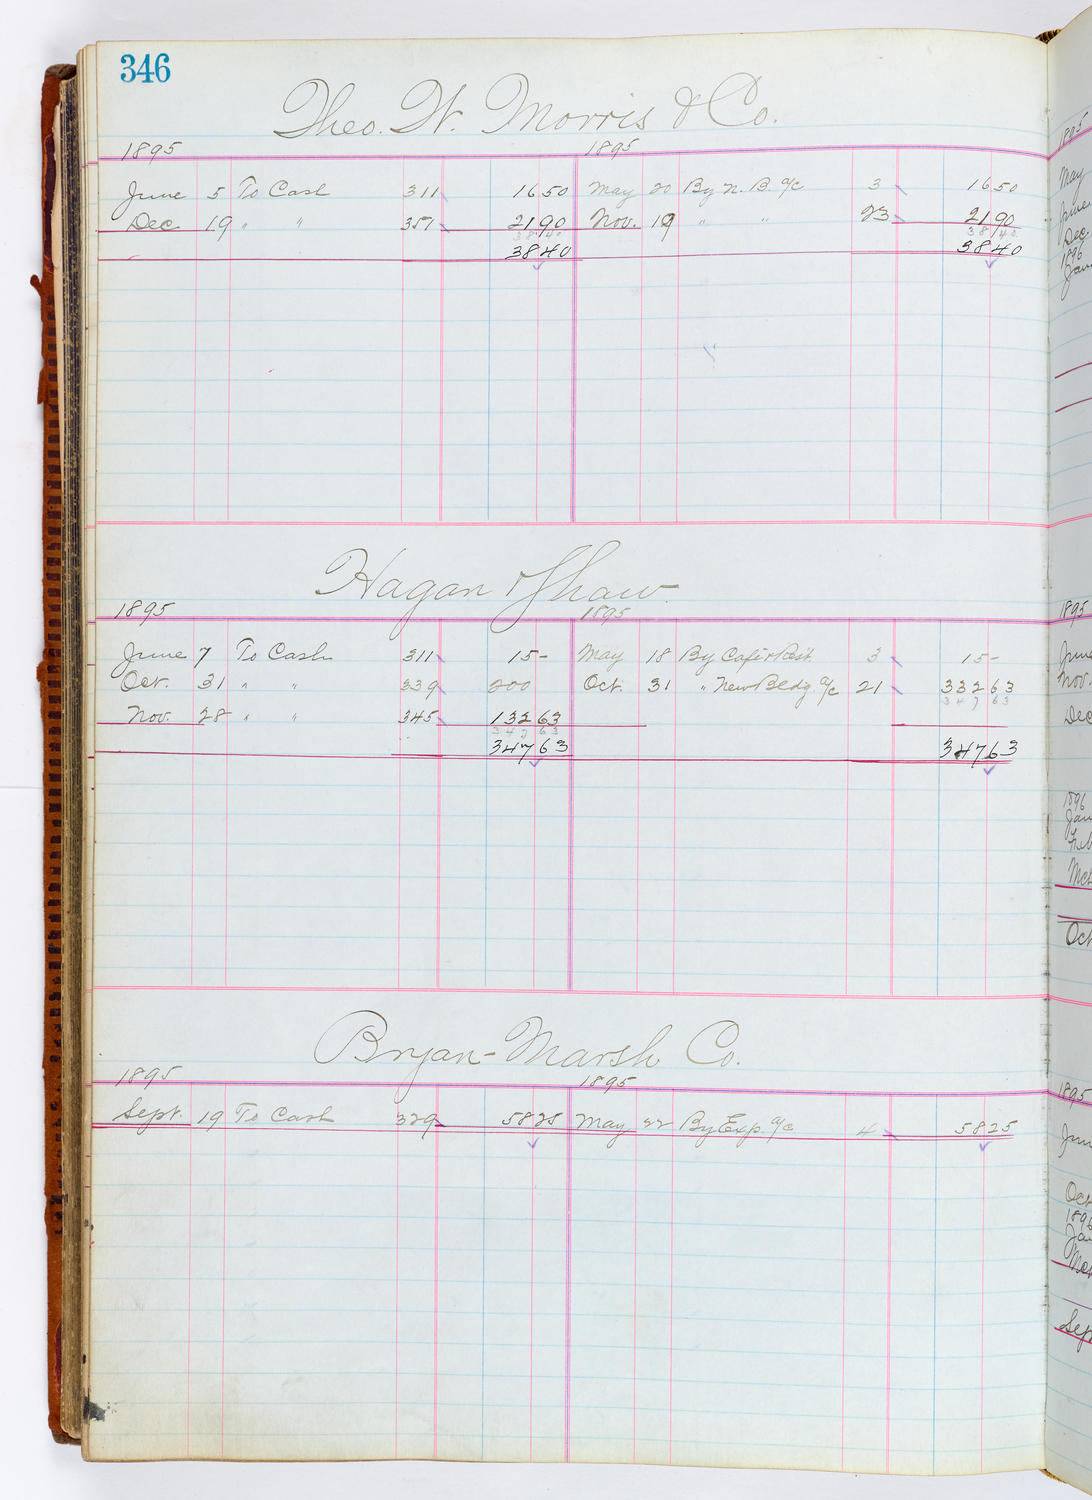 346
Theo. W. Morris & Co.
1895 1895
June 5 To Cash 311 16 50 May 20 By N. B. a/c 3 16 50
Dec. 19 " " 351 21 90 Nov. 19 " " 23 21 90
38 40 38 40
38 40 38 40
Hagan & Shaw
1895 1895
June 7 To Cash 311 15 - May 18 By Cafe & Rest. 3 15 -
Oct. 31 " " 339 200 Oct. 31 " New Bldg a/c 21 332 63
347 63
Nov. 28 " " 345 132 63
347 63
347 63 347 63
Bryan-Marsh Co.
1895 1895
Sept. 19 To Cash 329 58 25 May 22 By Exp. a/c 4 58 25
1895
May
June
Dec.
1896
Jan
1895
June
Nov.
Dec
1896
Jan
Feb
Mch
Oct
1895
June
Oct
1896
Jan
Mch
Sep